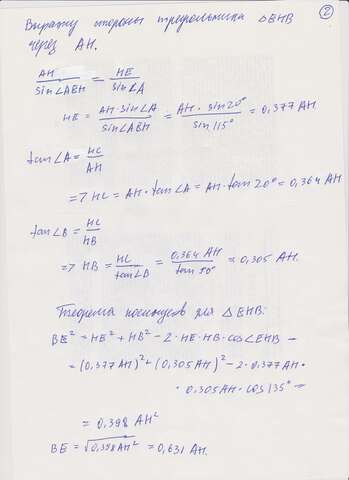 ②
Выражу стороны треугольника ΔEHB
через AH.
AH/sin∠AEH = HE/sin∠A
HE = AH·sin∠A/sin∠AEH = AH·sin20°/sin115° = 0,377 AH
tan∠A = HC/AH
=> HC = AH·tan∠A = AH·tan20° = 0,364 AH
tan∠B = HC/HB
=> HB = HC/tan∠B = 0,364 AH/tan 50° = 0,305 AH.
Теорема косинусов для ΔEHB:
BE² = HE² + HB² - 2·HE·HB·cos∠EHB =
= (0,377AH)² + (0,305AH)² - 2·0,377AH·
·0,305AH·cos135° =
= 0,398 AH²
BE = √0,398AH² = 0,631 AH.